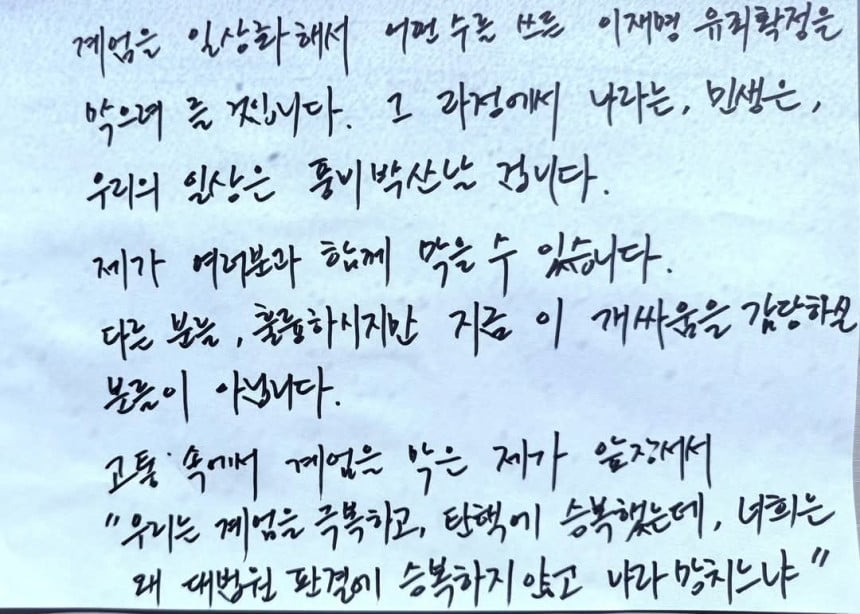 계엄을 일상화해서 어떤수를 쓰든 이재명 유죄확정을
막으려 들 것입니다. 그 과정에서 나라는, 민생은,
우리의 일상은 풍비박산날 겁니다.
제가 여러분과 함께 막을 수 있습니다.
다른 분들, 훌륭하시지만 지금 이 개싸움을 감당하실
분들이 아닙니다.
고통 속에서 계엄을 막은 제가 앞장서서
"우리는 계엄을 극복하고, 탄핵에 승복했는데, 너희는
왜 대법원 판결에 승복하지 않고 나라 망치느냐"